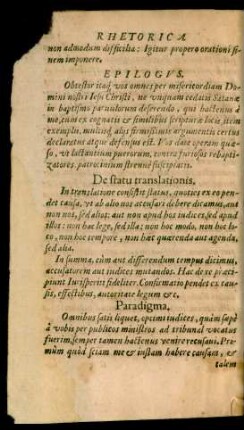 RHETORICA
non admodum difficilia: Igitur propero orationi fi-
nem imponere.
EPILOGVS.
Obtestor itaq; vos omnes per misericordiam Do-
mini nostri Iesu Christi, ne vnquam cedatis Satanæ
in baptismo paruulorum deserendo, qui hactenus à
me, tum ex cognatis ac similibus scripturæ locis, item
exemplis, multisq; alijs firmissimis argumentis certus
declaratus atque defensus est. Vos date operam quæ-
so, vt lactantium puerorum, contra furiosos rebapti-
zatores, patrocinium strenuè suscipiatis.
De statu translationis.
In translatione consistit status, quoties ex eo pen-
det causa, vt ab alio nos accusari debere dicamus, aut
non nos, sed alios: aut non apud hos iudices, sed apud
illos: non hac lege, sed illa: non hoc modo, non hoc lo-
co, non hoc tempore, non hæc quærenda aut agenda,
sed alia.
In summa, cùm aut differendum tempus dicimus,
accusatorem aut iudices mutandos. Hac de re præci-
piunt Iurisperiti fideliter. Confirmatio pendet ex cau-
sis, effectibus, autoritate legum &c.
Paradigma.
Omnibus satis liquet, optimi iudices, quàm sæpe
à vobis per publicos ministros ad tribunal vocatus
fuerim, semper tamen hactenus venire recusaui. Pri-
mùm quòd sciam me & iustam habere causam, &
talem